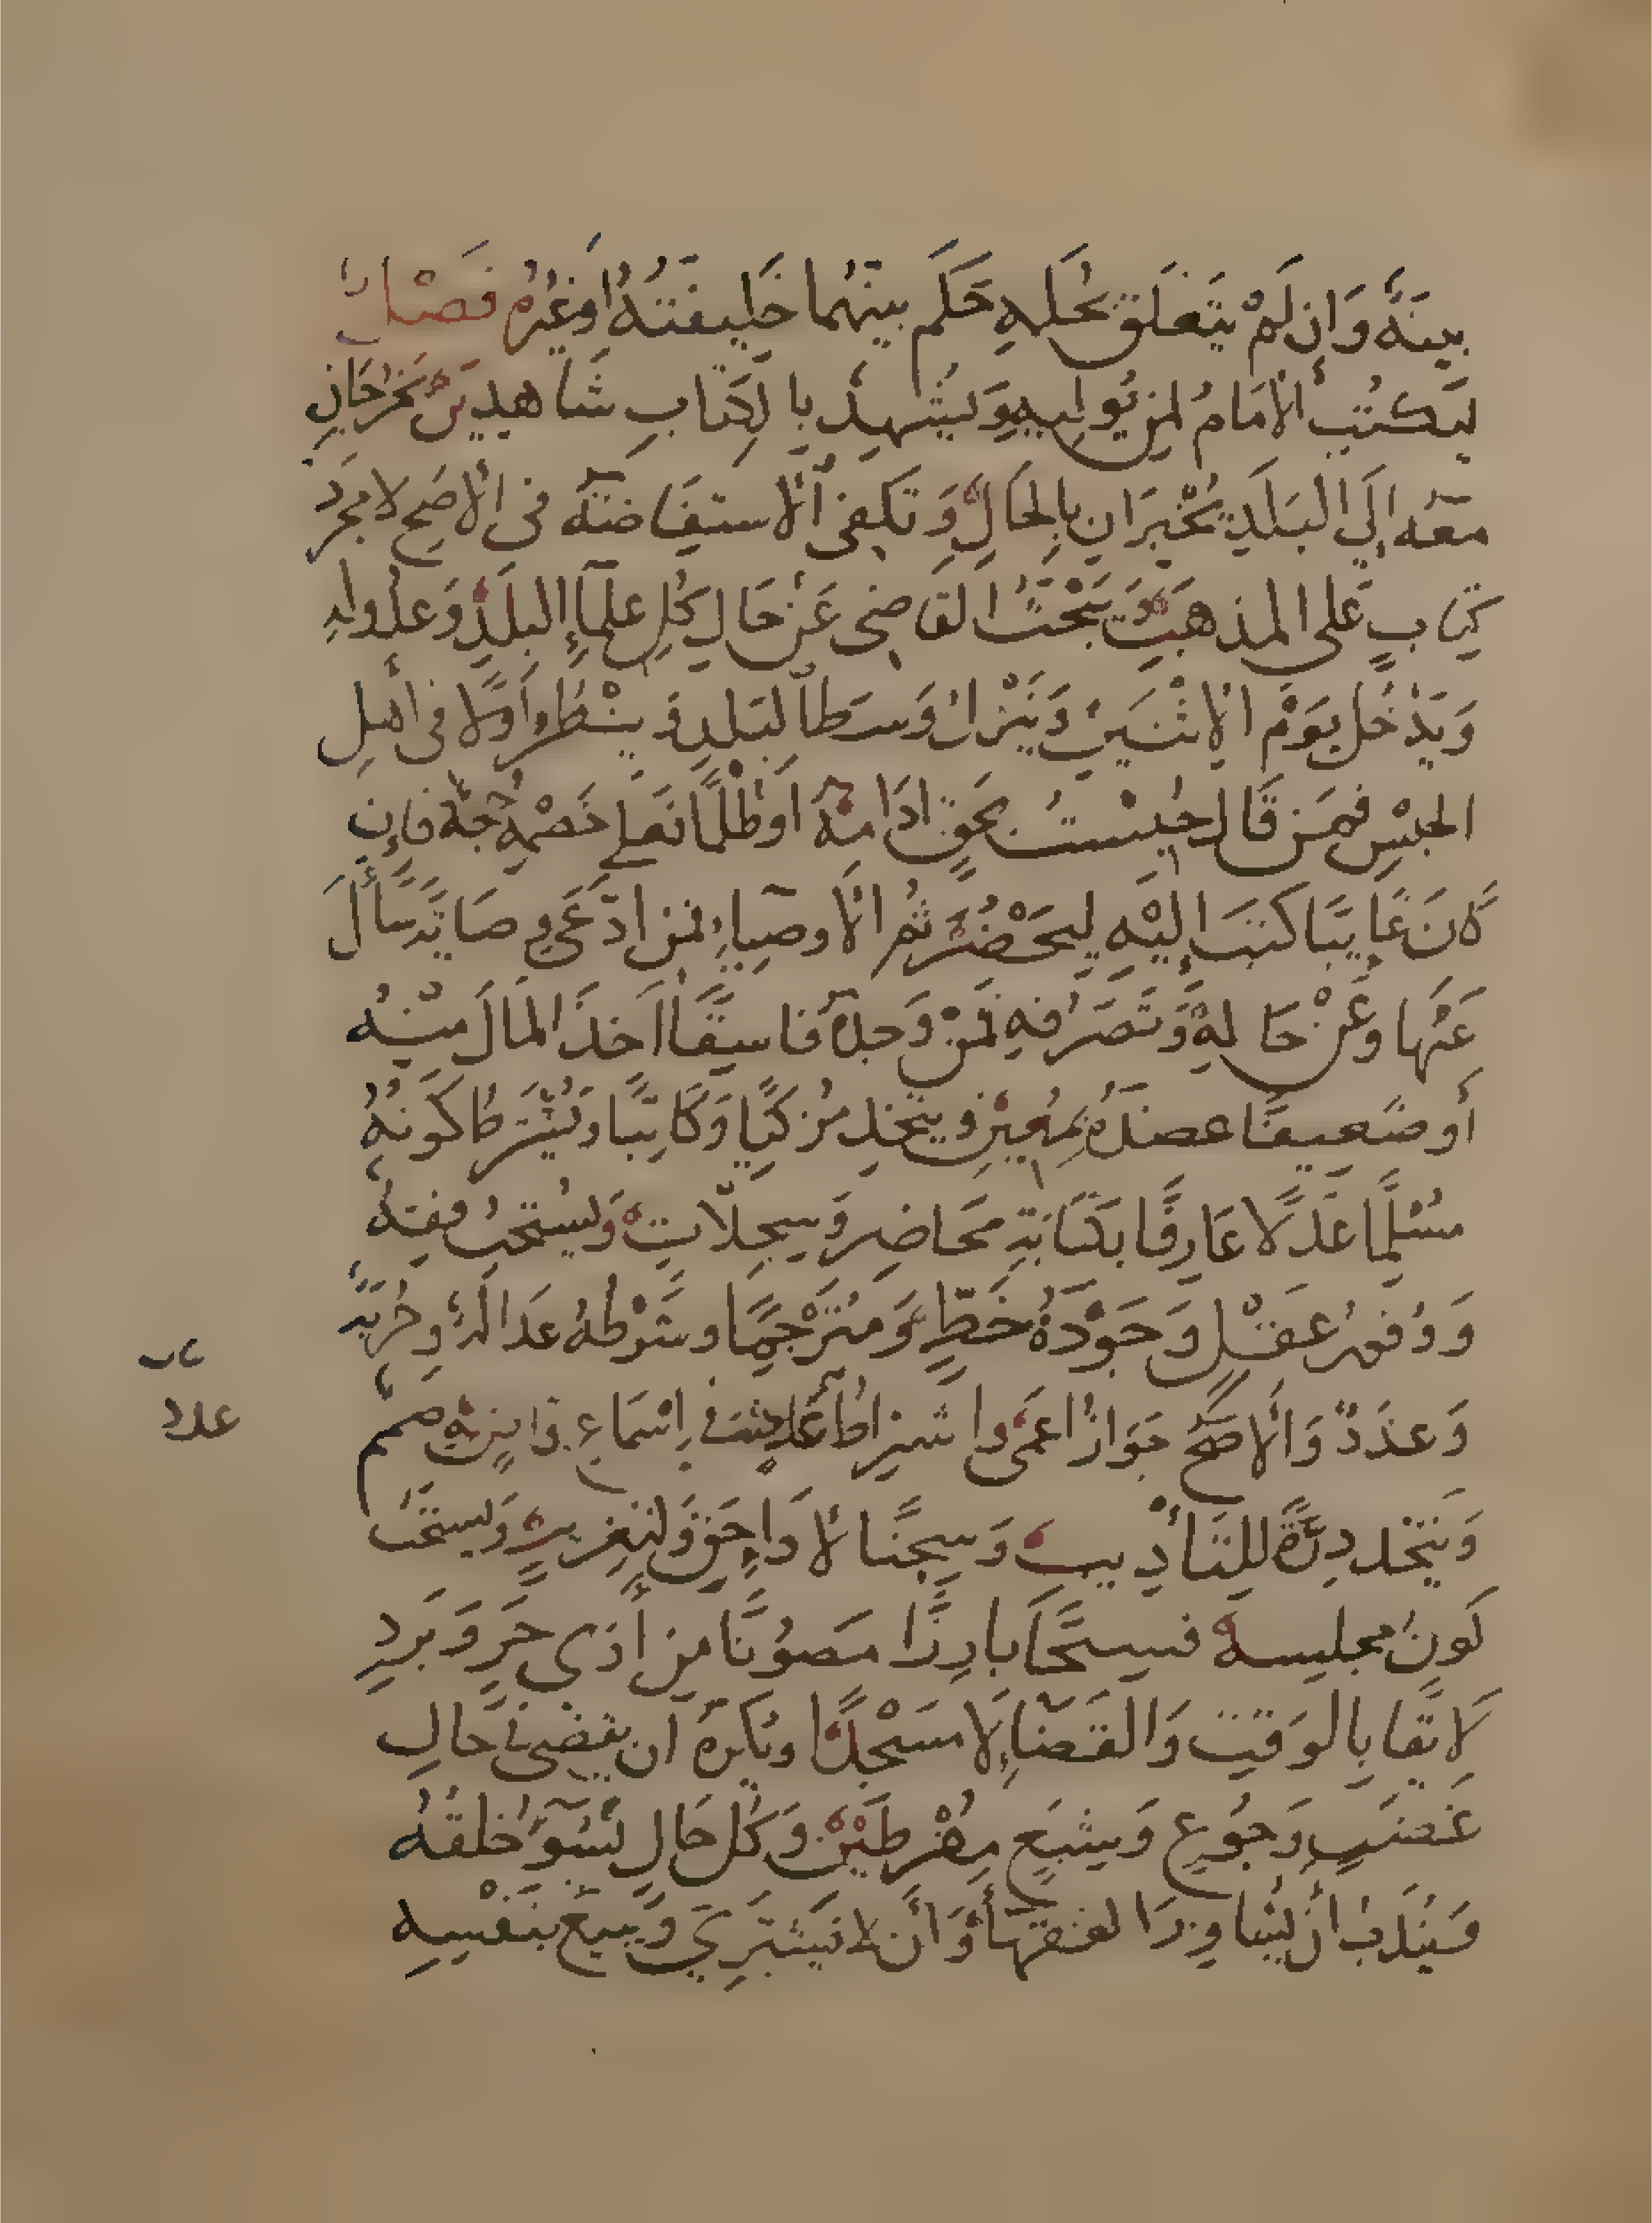 بينةٌ وَإن لَمْ يَتَعَلق بحُكمه حَكَم بينهُما خَليفتهُ اوغيرُهُ فَصْلٌ
ليَكتُب الأمَامُ لمن يُوليهِ وَيُشهدُ بالكتَابِ شَاهدينِ يَخرُجَانِ
معَه إلَى البَلَدِ يُخْبِرَانِ بالحَالِ وَ تكفى ألاستفَاضَة فى الأصَح لا مجرَد
كِتَابٍ عَلى المذهبِ وَيَبْحَث القاضى عَنْ حَالِ كلِ علمآءِ البلَدِ وَعدُوله
وَيَدْخُل يَوْمَ الإثْنَينِ وَيَنْزلُ وَسَطَ البَلدِ وَ ينْظُر أوّلا فى اهلِ
الحبْسِ فمَن قَال حُبسْتُ بحَقٍ ادَامهُ اوظُلْمًا فعَلى خَصْمِهِ حُجةٌ فإن
كَانَ غَايبًا كتبَ إليْهِ ليَحْضُرَ ثم الأوصيَاءِ فمن ادّعَى وصَايَةً سَألَ
عَنْها وعَنْ حَالهِ وَتَصَرُفهِ فمَنْ وَجدهُ فاسقًا اَخذَ المَالَ منهُ
أو ضَعيفًا عضدَهُ بمُعينٍ و يتخذ مُزكيًا وَكَاتبًا ويُشترطُ كَونهُ
مسْلِمًا عَدْلًا عَارفًا بكتَابَةِ محَاضِر وَسِجلّاتٍ وَيُستحبُ فقهٌ
وَوُفورُ عقْلٍ وَجَوْدَةُ خَطٍّ وَمُترْجِمًا وشَرْطهُ عَدَالَةٌ وحُريَّةٌ
وَعدَدٌ وَالأصَحُّ جَوَازُ اعمَى واشتراطُ عَدَدٍ فى إسْمَاعِ قاضٍ بهِ صممٌ
وَيَتخذ دِرَّةً للتَأدِيبِ وَسِجنًا لأدَاءِ حَقٍ وَلتعْزيرٍ وَيُستحبُ
كَونُ مجلسِهِ فسيحًا بارِزًا مَصُونًا مِن أذى حَرٍ وَبَردٍ
لَائقًا بِالوَقتِ وَالقَضَاءِ لا مسْجدًا ويُكرهُ أن يقضى فى حَالِ
غَضَبٍ وَجُوعٍ وَشبَعٍ مفْرطَيْن وَكُل حَالٍ يَسُوءُ خلقُهُ
وَيُندَبُ أنْ يُشاوِرَ الفقهَاءَ وَأن لا يَشتَرِيَ وَيَبيعَ بنَفْسِهِ
علاد